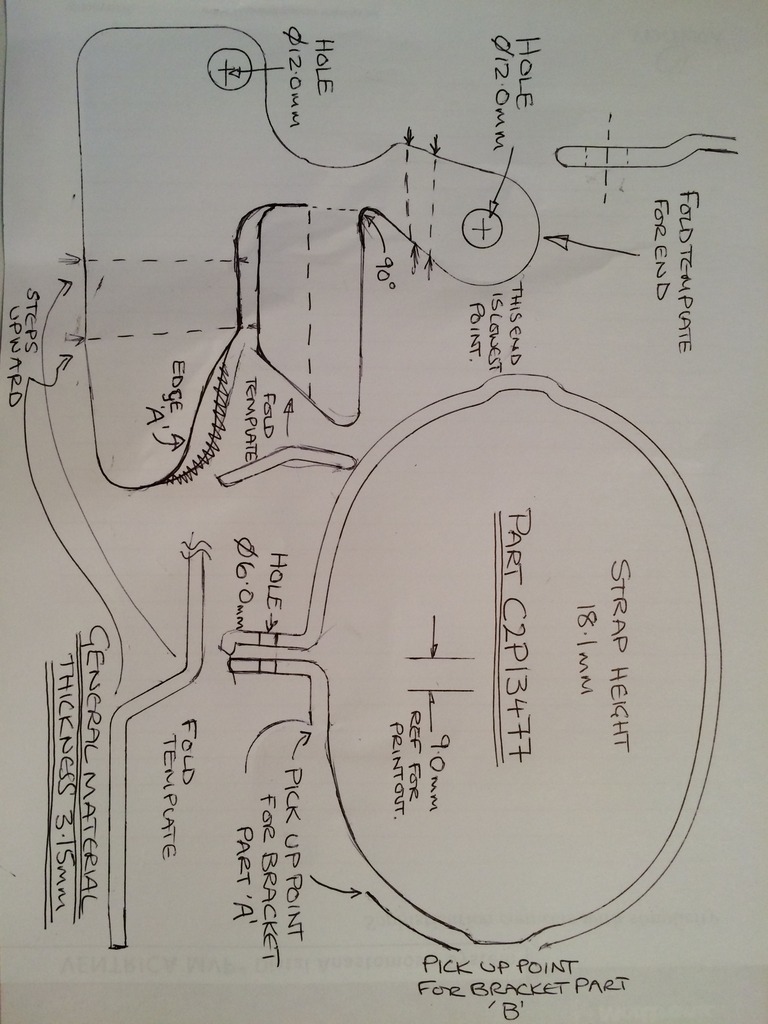 HOLE
Ø12.0mm
HOLE
Ø12.0mm
FOLD TEMPLATE
FOR END
90°
THIS END
IS LOWEST
POINT.
STEPS
UPWARD
EDGE
'A'
FOLD
TEMPLATE
PART C2P13477
STRAP HEIGHT
18.1mm
HOLE
Ø6.0mm
9.0mm
REF FOR
PRINTOUT.
FOLD
TEMPLATE
GENERAL MATERIAL
THICKNESS 3.15mm
PICK UP POINT
FOR BRACKET
PART 'A'
PICK UP POINT
FOR BRACKET PART
'B'
VENTRICA MVP